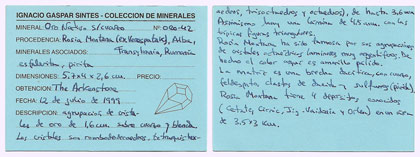 IGNACIO GASPAR SINTES - COLECCION DE MINERALES
MINERAL: Oro Nativo s/cuarzo Nº 080-42
PROCEDENCIA: Rosia Montana (ex Verespatak), Alba,
MINERALES ASOCIADOS: Transilvania, Rumania
esfalerita, pirita
DIMENSIONES: 5,1 x 4 x 2,6 cm. PRECIO:
OBTENTION: The Arkenstone
FECHA: 12 de junio de 1999
DESCRIPCION: agrupaciones de crista-
les de oro de 1,6 cm sobre cuarzo y blenda.
Los cristales son
aedros, trisoctaedros y octaedros), de hasta 3,6 mm
Asimismo hay una lámina de 4,5 mm. con las
típicas figuras triangulares.
Rosia Montana ha sido famosa por sus agrupaciones
de cristales octaédricos laminares muy
hecho el color aquí es amarillo pálido.
La matriz es una brecha dacítica, con cuarzo,
feldespato, clastos de dacita y sulfuros (pirita).
Rosia Montana tiene 4 depósitos conocidos
(Cetate, Cirnic, Jig - Vaidoaia y Orlea) en un área
de 3,5 x 3 Km.